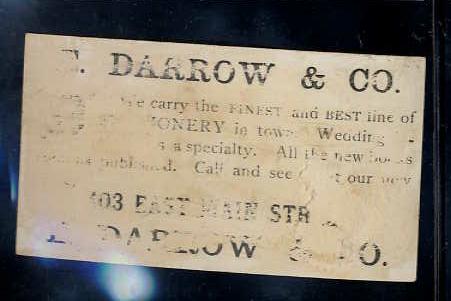 E. DARROW & CO.
We carry the FINEST and BEST line of
IONERY in town. Wedding
s a specialty. All the new books
as published. Call and see our
403 EAST MAIN STR
E. DARROW & CO.